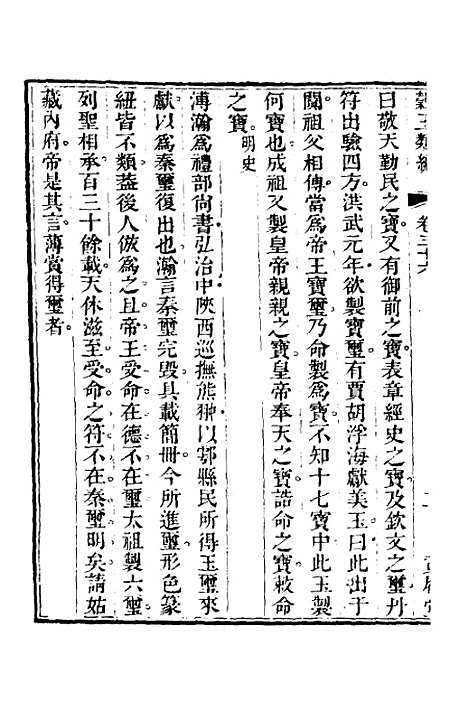 穀玉類編 卷三十六
曰敬天勤民之寶又有御前之寶表章經史之寶及欽文之璽丹
符出驗四方洪武元年欲製寶璽有賈胡浮海獻美玉曰此出于
闐祖父相傳當爲帝王寶璽乃命製爲寶不知十七寶中此玉製
何寶也成祖又製皇帝親親之寶皇帝奉天之寶誥命之寶敕命
之寶明史
溥瀚爲禮部尙書弘治中陝西巡撫熊翀以鄠縣民所得玉璽來
獻以爲秦璽復出也瀚言秦璽完毀具載簡冊今所進璽形色篆
紐皆不類蓋後人倣爲之且帝王受命在德不在璽太祖製六璽
列聖相承百三十餘載天休滋至受命之符不在秦璽明矣請姑
藏內府帝是其言薄賞得璽者